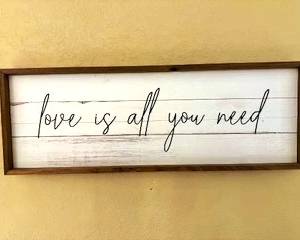 love is all you need.